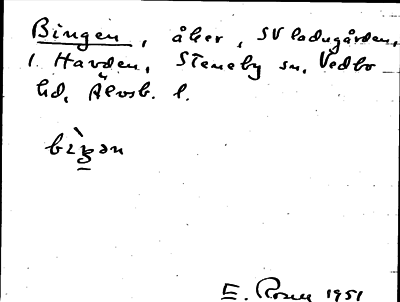 Bingen, åker, SV ladugården,
1. Havden, Steneby sn, Vedbo
hd, Älvsb. l.
bìŋən
E. Rosell 1951